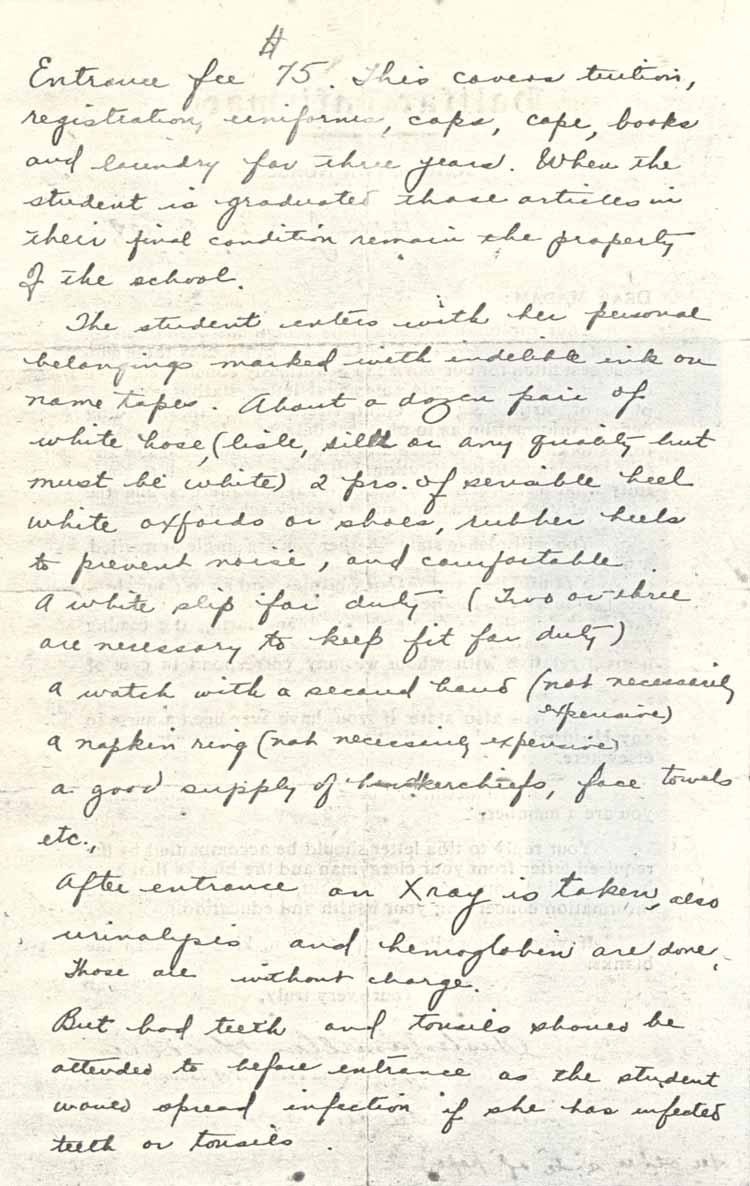 #
Entrance fee 75. This covers tuition,
registration, uniforms, caps, cape, books
and laundry for three years. When the
student is graduated those articles in
their final condition remain the property
of the school.
The student enters with her personal
belongings marked with indelible ink on
name tapes. About a dozen pair of
white hose, (lisle, silk or any quality but
must be white) 2 prs. of sensible heel
white oxfords or shoes, rubber heels
to prevent noise, and comfortable.
A white slip for duty (Two or three
are necessary to keep fit for duty)
a watch with a second hand (not necessarily
expensive)
a napkin ring (not necessarily expensive)
a good supply of handkerchiefs, face towels
etc.,
After entrance an Xray is taken, also
urinalysis and hemoglobin are done,
Those are without charge.
But bad teeth and tonsils should be
attended to before entrance as the student
would spread infection if she has infected
teeth or tonsils.